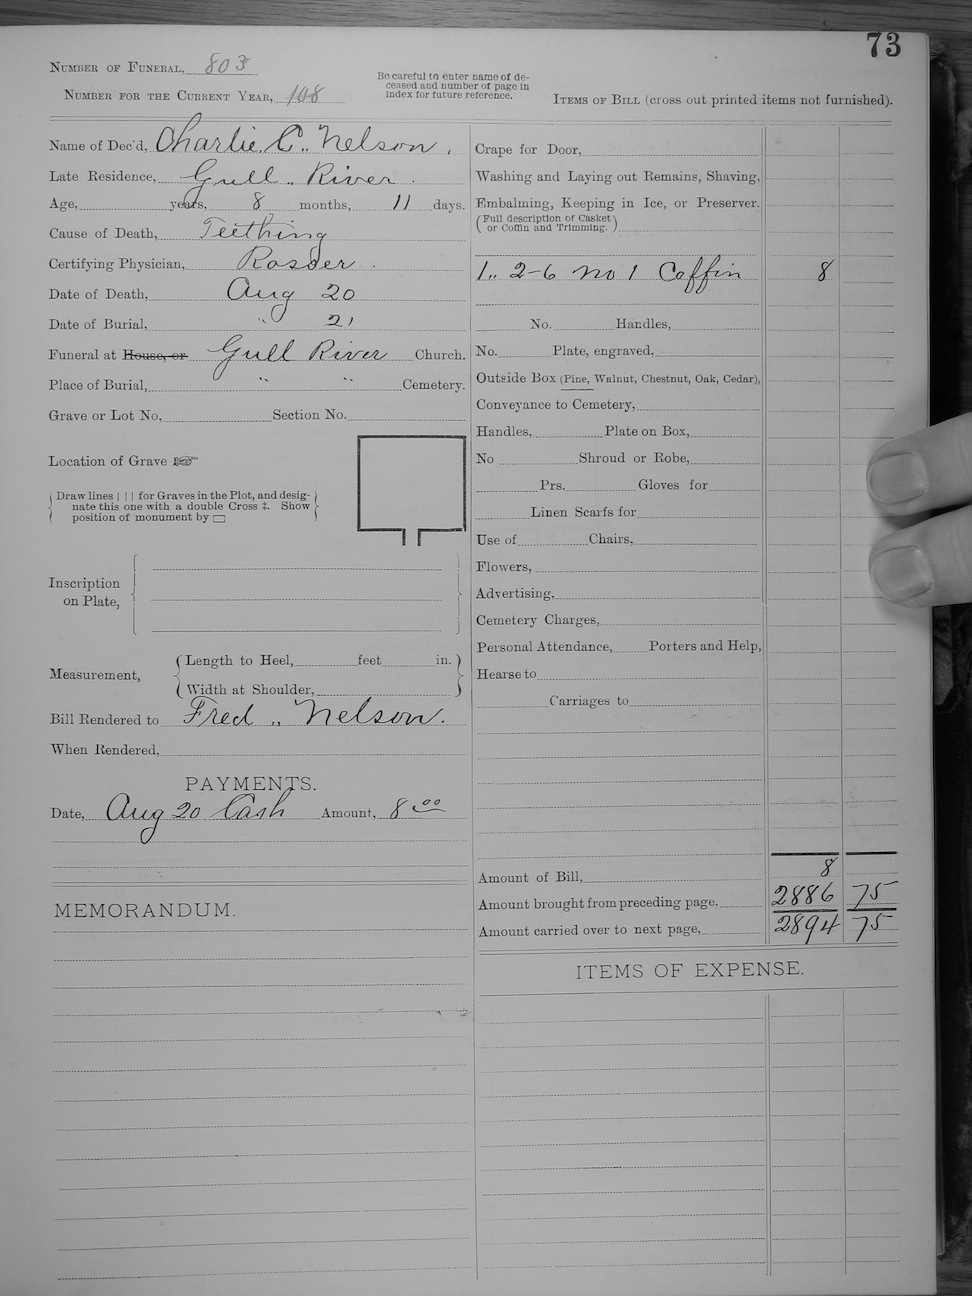 73
NUMBER OF FUNERAL, 803
NUMBER FOR THE CURRENT YEAR, 108
Be careful to enter name of de-
ceased and number of page in
index for future reference.
ITEMS OF BILL (cross out printed items not furnished).
Name of Dec'd, Charlie. C.. Nelson.
Late Residence, Gull .. River.
Age, years, 8 months, 11 days.
Cause of Death, Teething
Certifying Physician, Rosser.
Date of Death, Aug 20
Date of Burial, " 21
Funeral at House, or Gull River Church.
Place of Burial, " " Cemetery.
Grave or Lot No, Section No.
Location of Grave ☞
Draw lines | | | for Graves in the Plot, and desig-
nate this one with a double Cross ‡. Show
position of monument by ▭
Inscription
on Plate,
Measurement,
Length to Heel, feet in.
Width at Shoulder,
Bill Rendered to Fred .. Nelson.
When Rendered,
PAYMENTS.
Date, Aug 20 Cash Amount, 8 00
MEMORANDUM.
Crape for Door,
Washing and Laying out Remains, Shaving,
Embalming, Keeping in Ice, or Preserver.
(Full description of Casket
or Coffin and Trimming.)
1.. 2-6 No 1 Coffin 8
No. Handles,
No. Plate, engraved,
Outside Box (Pine, Walnut, Chestnut, Oak, Cedar),
Conveyance to Cemetery,
Handles, Plate on Box,
No Shroud or Robe,
Prs. Gloves for
Linen Scarfs for
Use of Chairs,
Flowers,
Advertising,
Cemetery Charges,
Personal Attendance, Porters and Help,
Hearse to
Carriages to
Amount of Bill, 8
Amount brought from preceding page, 2886 75
Amount carried over to next page, 2894 75
ITEMS OF EXPENSE.